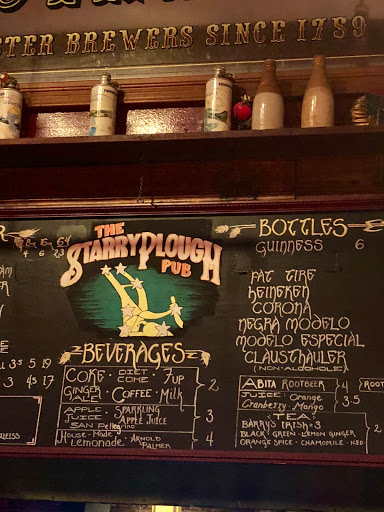 STER BREWERS SINCE 1759
THE
STARRY PLOUGH
PUB
BEVERAGES
COKE · DIET COKE · 7UP
GINGER ALE · COFFEE · MILK
2
APPLE JUICE · SPARKLING APPLE JUICE
SAN PELLEGRINO
3
HOUSE-MADE LEMONADE · ARNOLD PALMER
4
BOTTLES
GUINNESS 6
FAT TIRE
HEINEKEN
CORONA
NEGRA MODELO
MODELO ESPECIAL
CLAUSTHAULER
(NON-ALCOHOLIC)
ABITA ROOTBEER 4
JUICE: Orange
Cranberry · Mango
3.5
TEA:
BARRY'S IRISH = 3
BLACK · GREEN · LEMON GINGER
ORANGE SPICE · CHAMOMILE · ICED
2